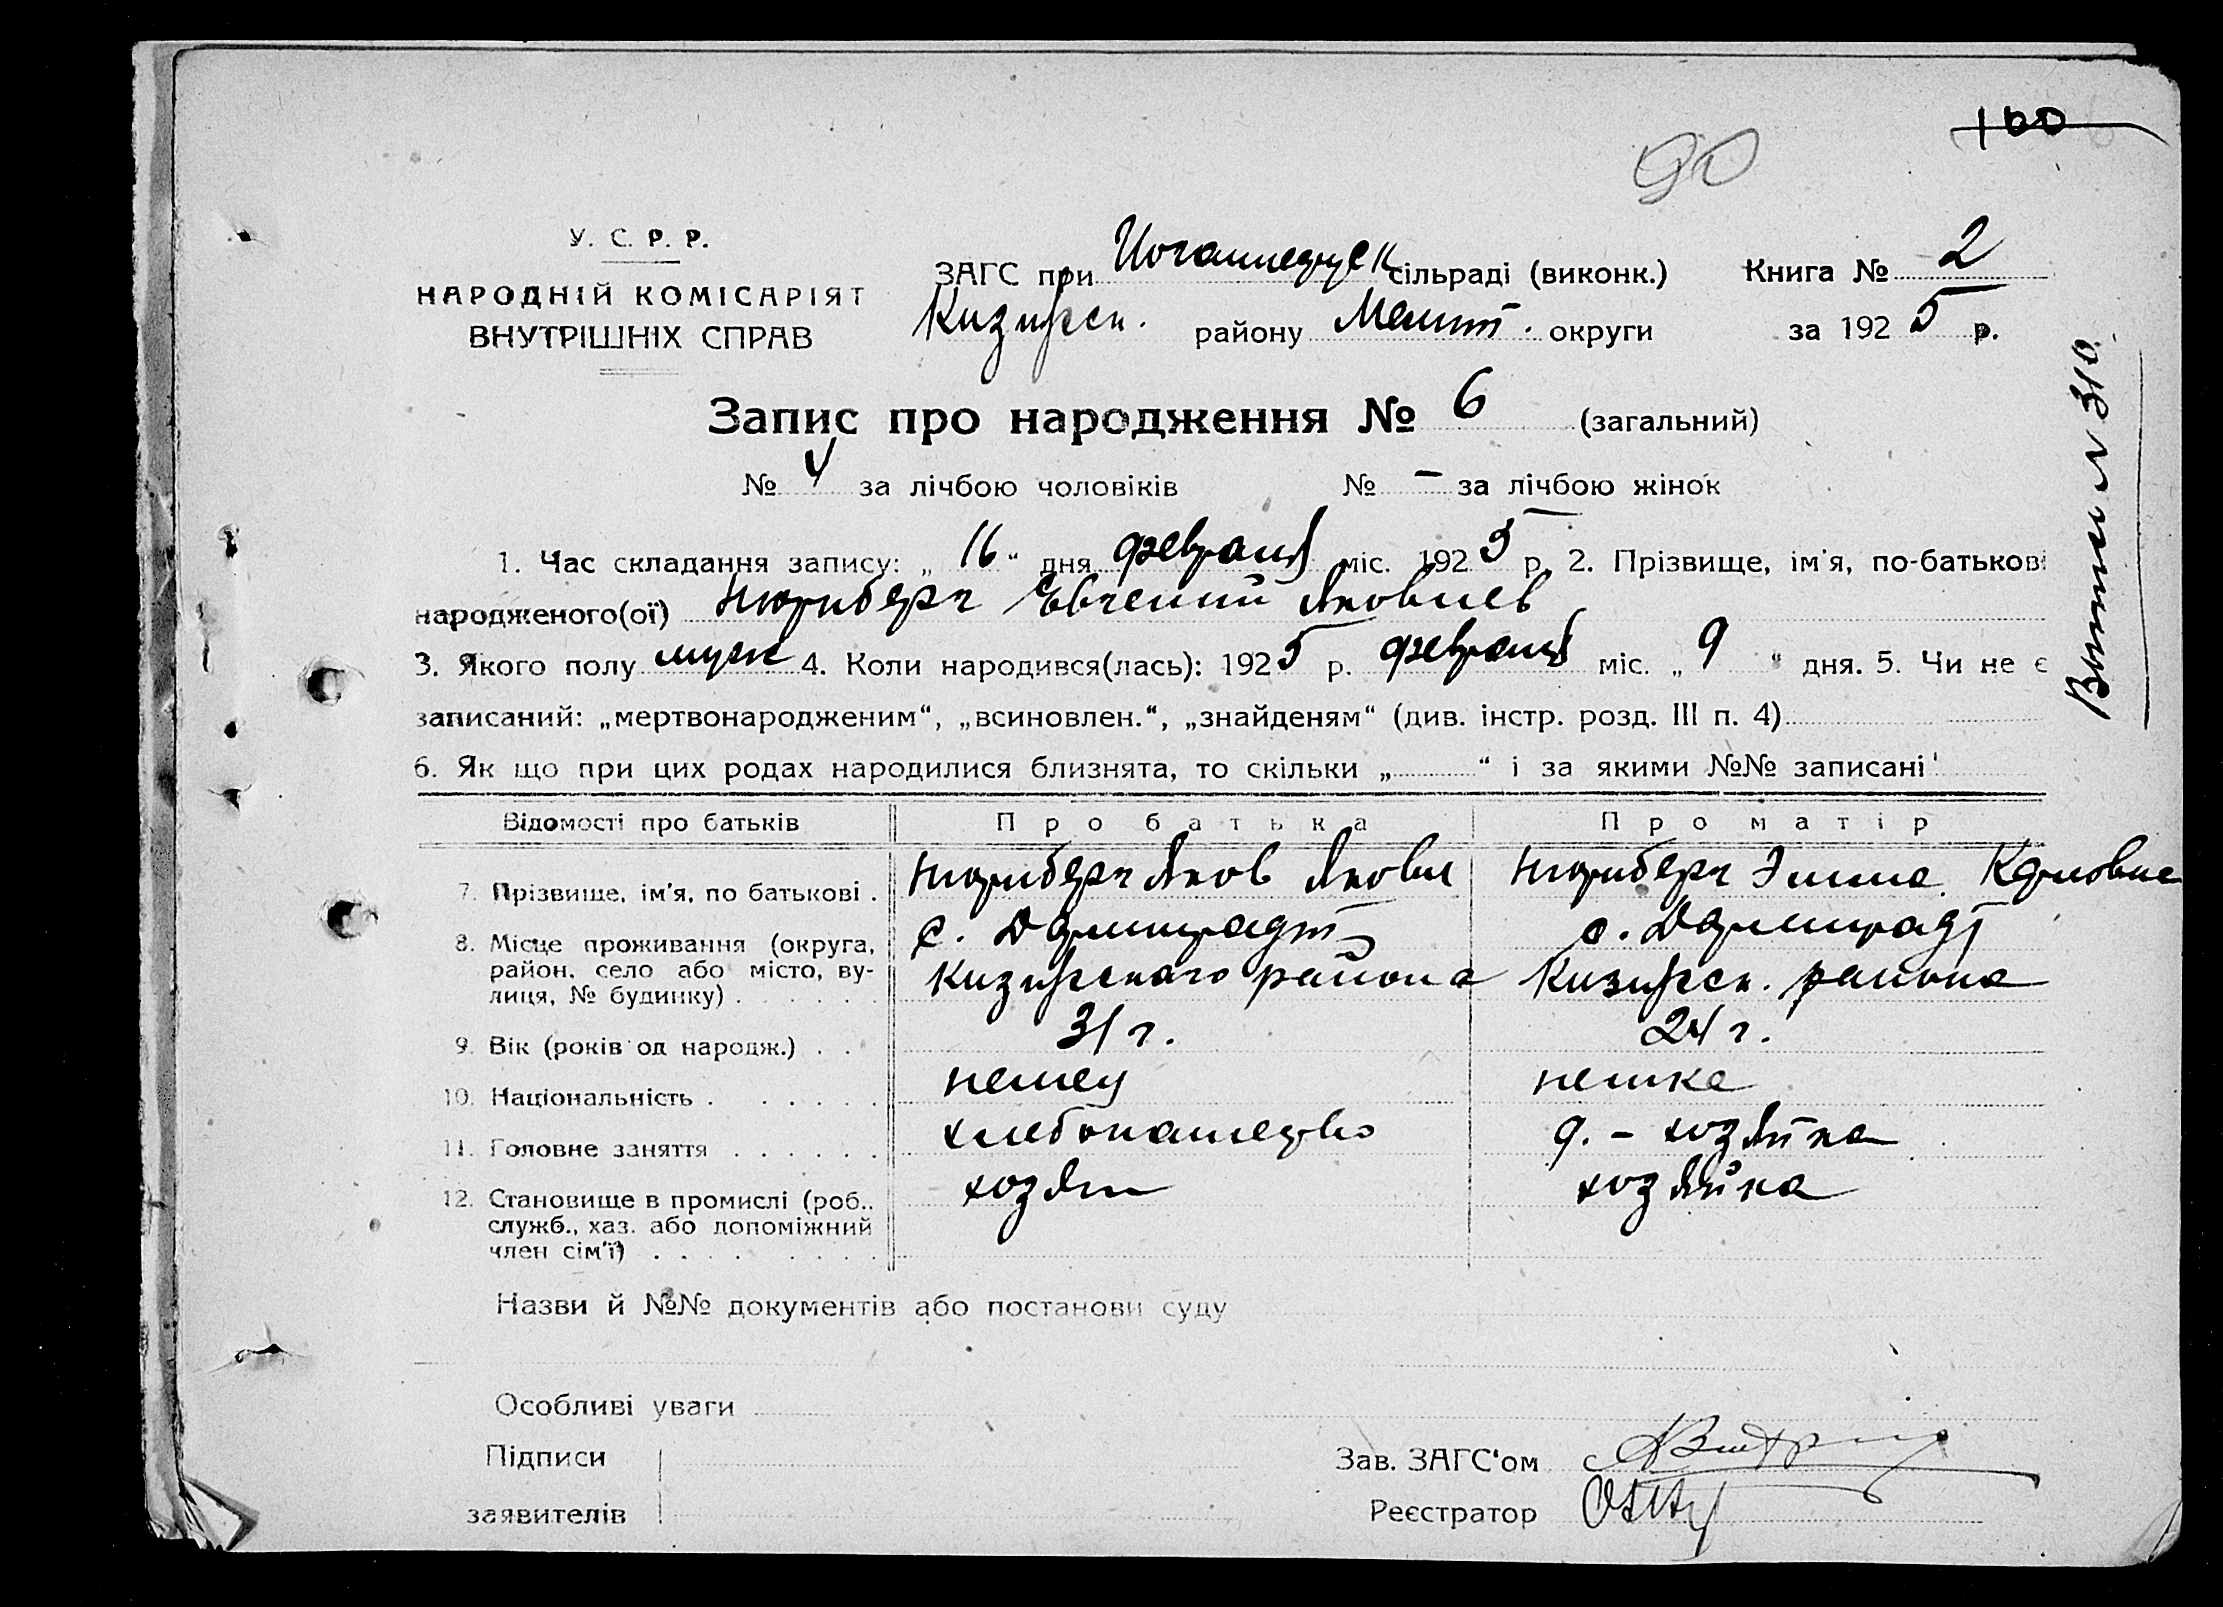 160
90
У. С. Р. Р.
НАРОДНІЙ КОМІСАРІЯТ
ВНУТРІШНІХ СПРАВ
ЗАГС при сільраді (виконк.) Книга № 2
району Мелит. округи за 1925 р.
Запис про народження № 6 (загальний)
№ 4 за лічбою чоловіків № – за лічбою жінок
1. Час складання запису: „ 16 “ дня февраля міс. 1925 р. 2. Прізвище, ім'я, по-батькові
народженого(ої) Нюриберг Евгений Яковлев
3. Якого полу муж 4. Коли народився(лась): 1925 р. февраля міс. „ 9 “ дня. 5. Чи не є
записаний: „мертвонародженим“, „всиновлен.“, „знайденям“ (див. інстр. розд. III п. 4)
6. Як що при цих родах народилися близнята, то скільки „ “ і за якими №№ записані
Відомості про батьків Про батька Про матір
7. Прізвище, ім'я, по батькові . Нюриберг Яков Яковл Нюриберг Эмма Карловна
8. Місце проживання (округа, район, село або місто, вулиця, № будинку) . . . . . . с. Дармштадт района с. Дармштадт района
9. Вік (років од народж.) . . 31 г. 24 г.
10. Національність . . . . . . немец немка
11. Головне заняття . . . . . . хлебопашество д. – хозяйка
12. Становище в промислі (роб., служб., хаз. або допоміжний член сім'ї) . . . . . . . . . хозяин хозяйка
Назви й №№ документів або постанови суду
Особливі уваги
Підписи
заявителів
Зав. ЗАГС'ом
Реєстратор